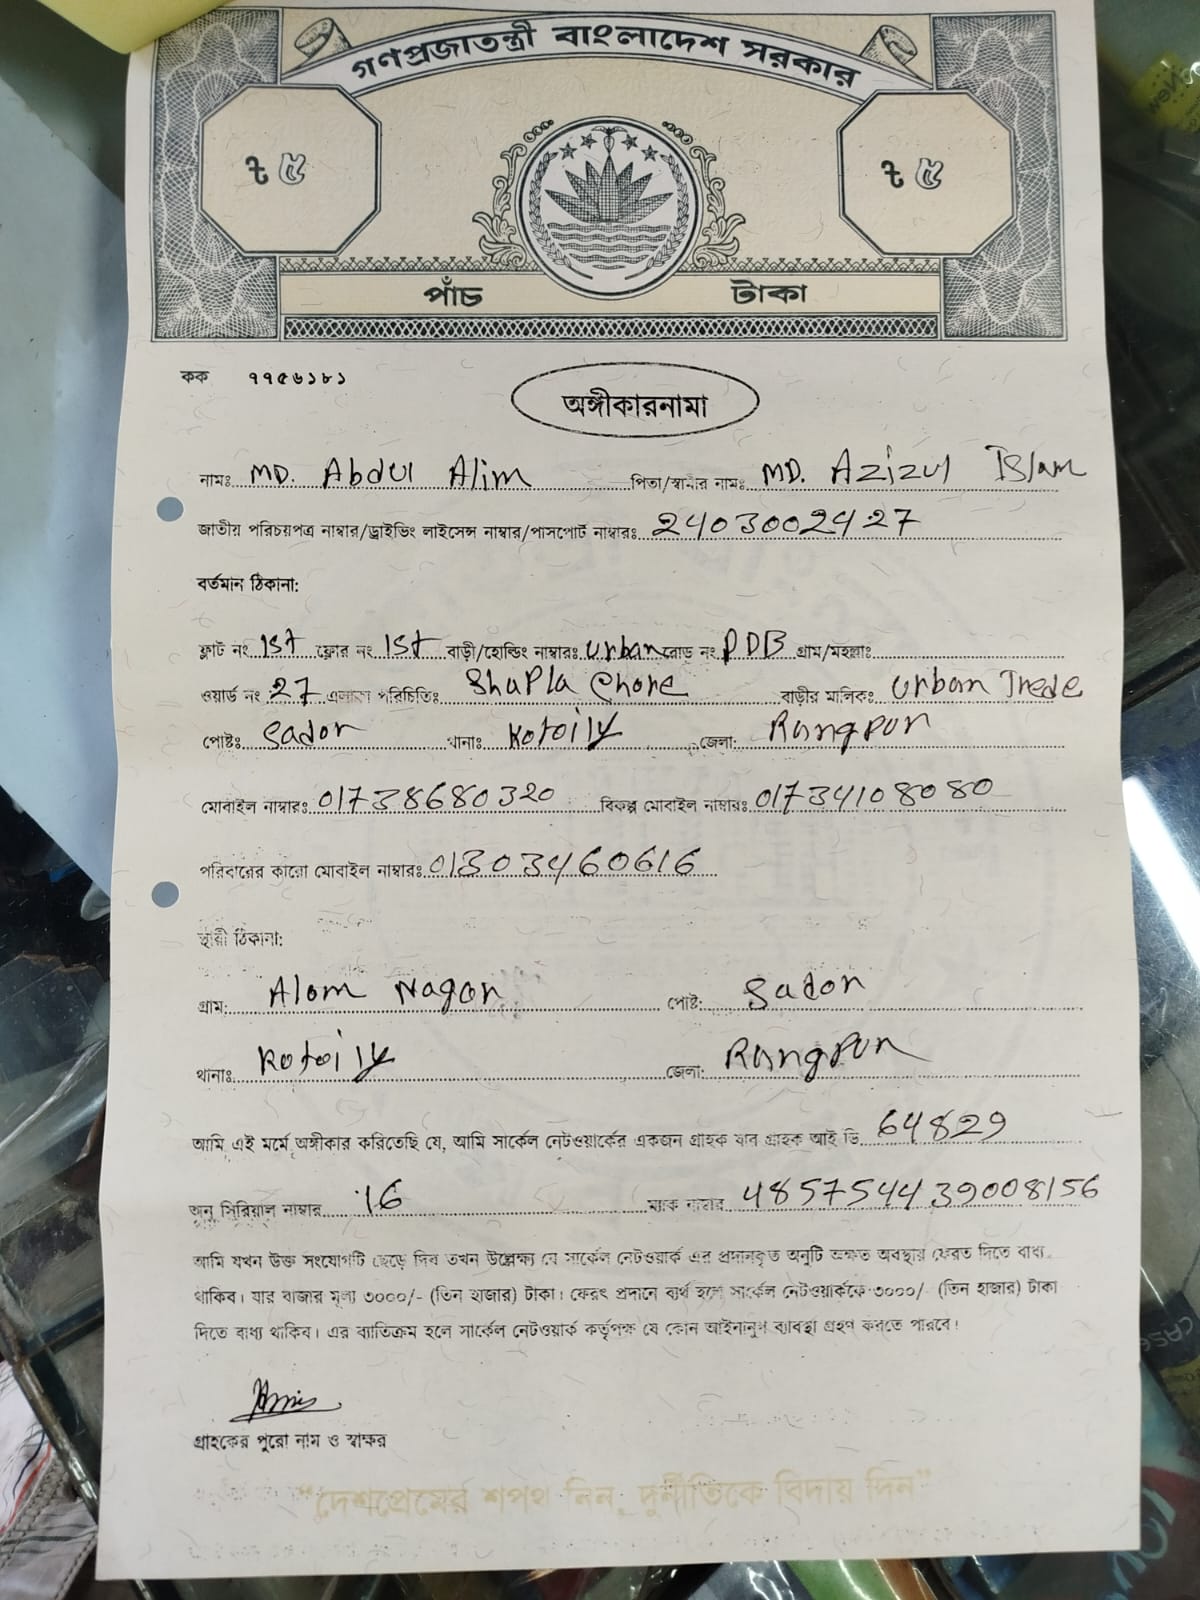 গণপ্রজাতন্ত্রী বাংলাদেশ সরকার
৳ ৫ ৳ ৫
পাঁচ টাকা
কক ৭৭৫৬১৮১
অঙ্গীকারনামা
নামঃ MD. Abdul Alim পিতা/স্বামীর নামঃ MD. Azizul Islam
জাতীয় পরিচয়পত্র নাম্বার/ড্রাইভিং লাইসেন্স নাম্বার/পাসপোর্ট নাম্বারঃ 2403002427
বর্তমান ঠিকানা:
ফ্লাট নং 1st ফ্লোর নং 1st বাড়ী/হোল্ডিং নাম্বারঃ urban রোড নং PDB গ্রাম/মহল্লাঃ
ওয়ার্ড নং 27 এলাকা পরিচিতিঃ Shapla Chore বাড়ীর মালিকঃ Urban Trede
পোষ্টঃ Sador থানাঃ Kotoily জেলা: Rangpur
মোবাইল নাম্বারঃ 01738680320 বিকল্প মোবাইল নাম্বারঃ 01734108080
পরিবারের কারো মোবাইল নাম্বারঃ 01303460616
স্থায়ী ঠিকানা:
গ্রাম: Alom Nagor পোষ্ট: Sador
থানাঃ Kotoily জেলা: Rangpur
আমি এই মর্মে অঙ্গীকার করিতেছি যে, আমি সার্কেল নেটওয়ার্কের একজন গ্রাহক যার গ্রাহক আই ডি 64829
অনু সিরিয়াল নাম্বার 16 ম্যাক নাম্বার 4857544439008156
আমি যখন উক্ত সংযোগটি ছেড়ে দিব তখন উল্লেক্ষ্য যে সার্কেল নেটওয়ার্ক এর প্রদানকৃত অনুটি অক্ষত অবস্থায় ফেরত দিতে বাধ্য
থাকিব। যার বাজার মূল্য ৩০০০/- (তিন হাজার) টাকা। ফেরৎ প্রদানে ব্যর্থ হলে সার্কেল নেটওয়ার্ককে ৩০০০/- (তিন হাজার) টাকা
দিতে বাধ্য থাকিব। এর ব্যতিক্রম হলে সার্কেল নেটওয়ার্ক কর্তৃপক্ষ যে কোন আইনানুগ ব্যাবস্থা গ্রহণ করতে পারবে।
গ্রাহকের পুরো নাম ও স্বাক্ষর
"দেশপ্রেমের শপথ নিন, দুর্নীতিকে বিদায় দিন"